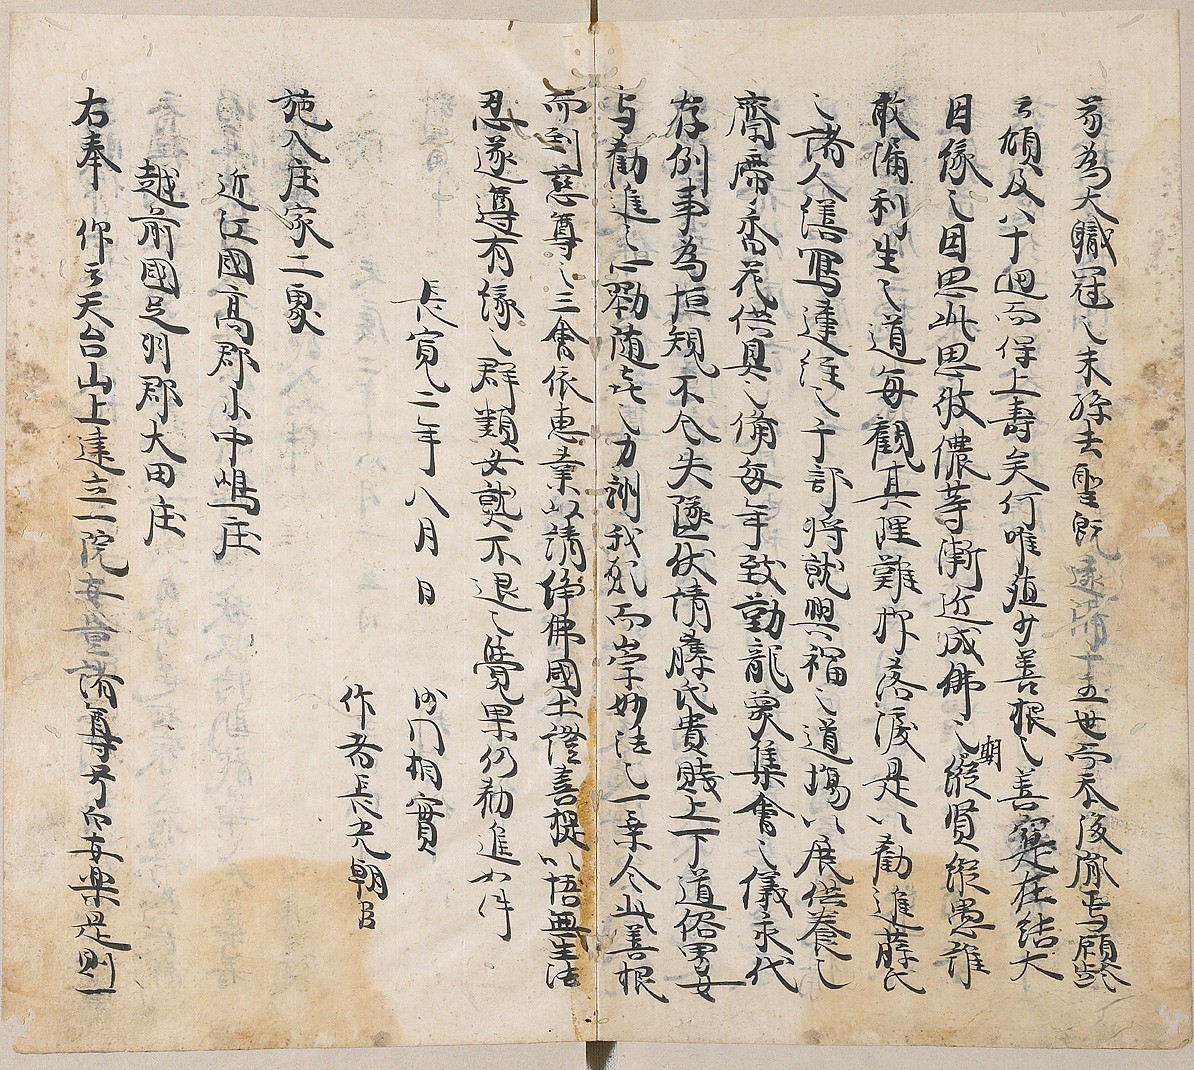 苟為大職冠之末孫去聖既遠僅十五世而忝後胤焉顧齡
云頽及八十廻而得上壽矣何唯殖少善根之善寔是在結大
因縁之因思此思彼儂等漸近成佛之朝縦賢縦愚誰
敢滿利生之道每觀其理難抑落涙是以勸進藤氏
之諸人繕寫蓮経之千部將就興福之道塲以展供養之
齋席香花供具之備每年致勤龍象集會之儀永代
存例事為恒規不令失墜伏請藤氏貴賤上下道俗男女
与勸進之心勠随喜之力訓我願而崇妙法之一乗令此善根
而到慈尊之三會依惠業以請浄佛國土證菩提以悟無生法
忍遂導有縁之群類安熟不退之覺果仍勸進如件
長寛二年八月 日
沙門相實
作者長光朝臣
施入庄家二處
近江國髙郡小中嶋庄
越前國足羽郡大田庄
右奉 仰云天台山上建立一院安置諸尊号曰安樂是則